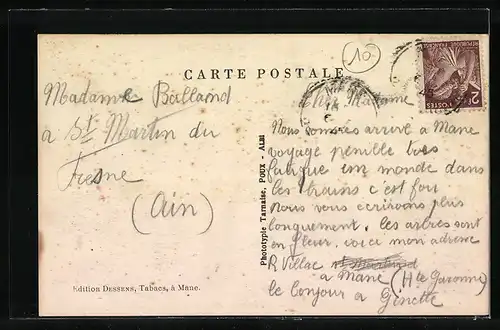 10
CARTE POSTALE
POSTES
REPUBLIQUE FRANÇAISE
2F
Madame Balland
à St Martin du
Fresne
(Ain)
Edition DESSENS, Tabacs, à Mane.
Phototypie Tarnaise, POUX - ALBI
Madame
Nous sommes arrivé a Mane
voyage penible tres
fatigue un monde dans
les trains c'est fou
nous vous ecrivons plus
longuement. les arbres sont
en fleur, voice mon adresse
R Villac
a Mane (Hte Garonne)
le bonjour a Ginette